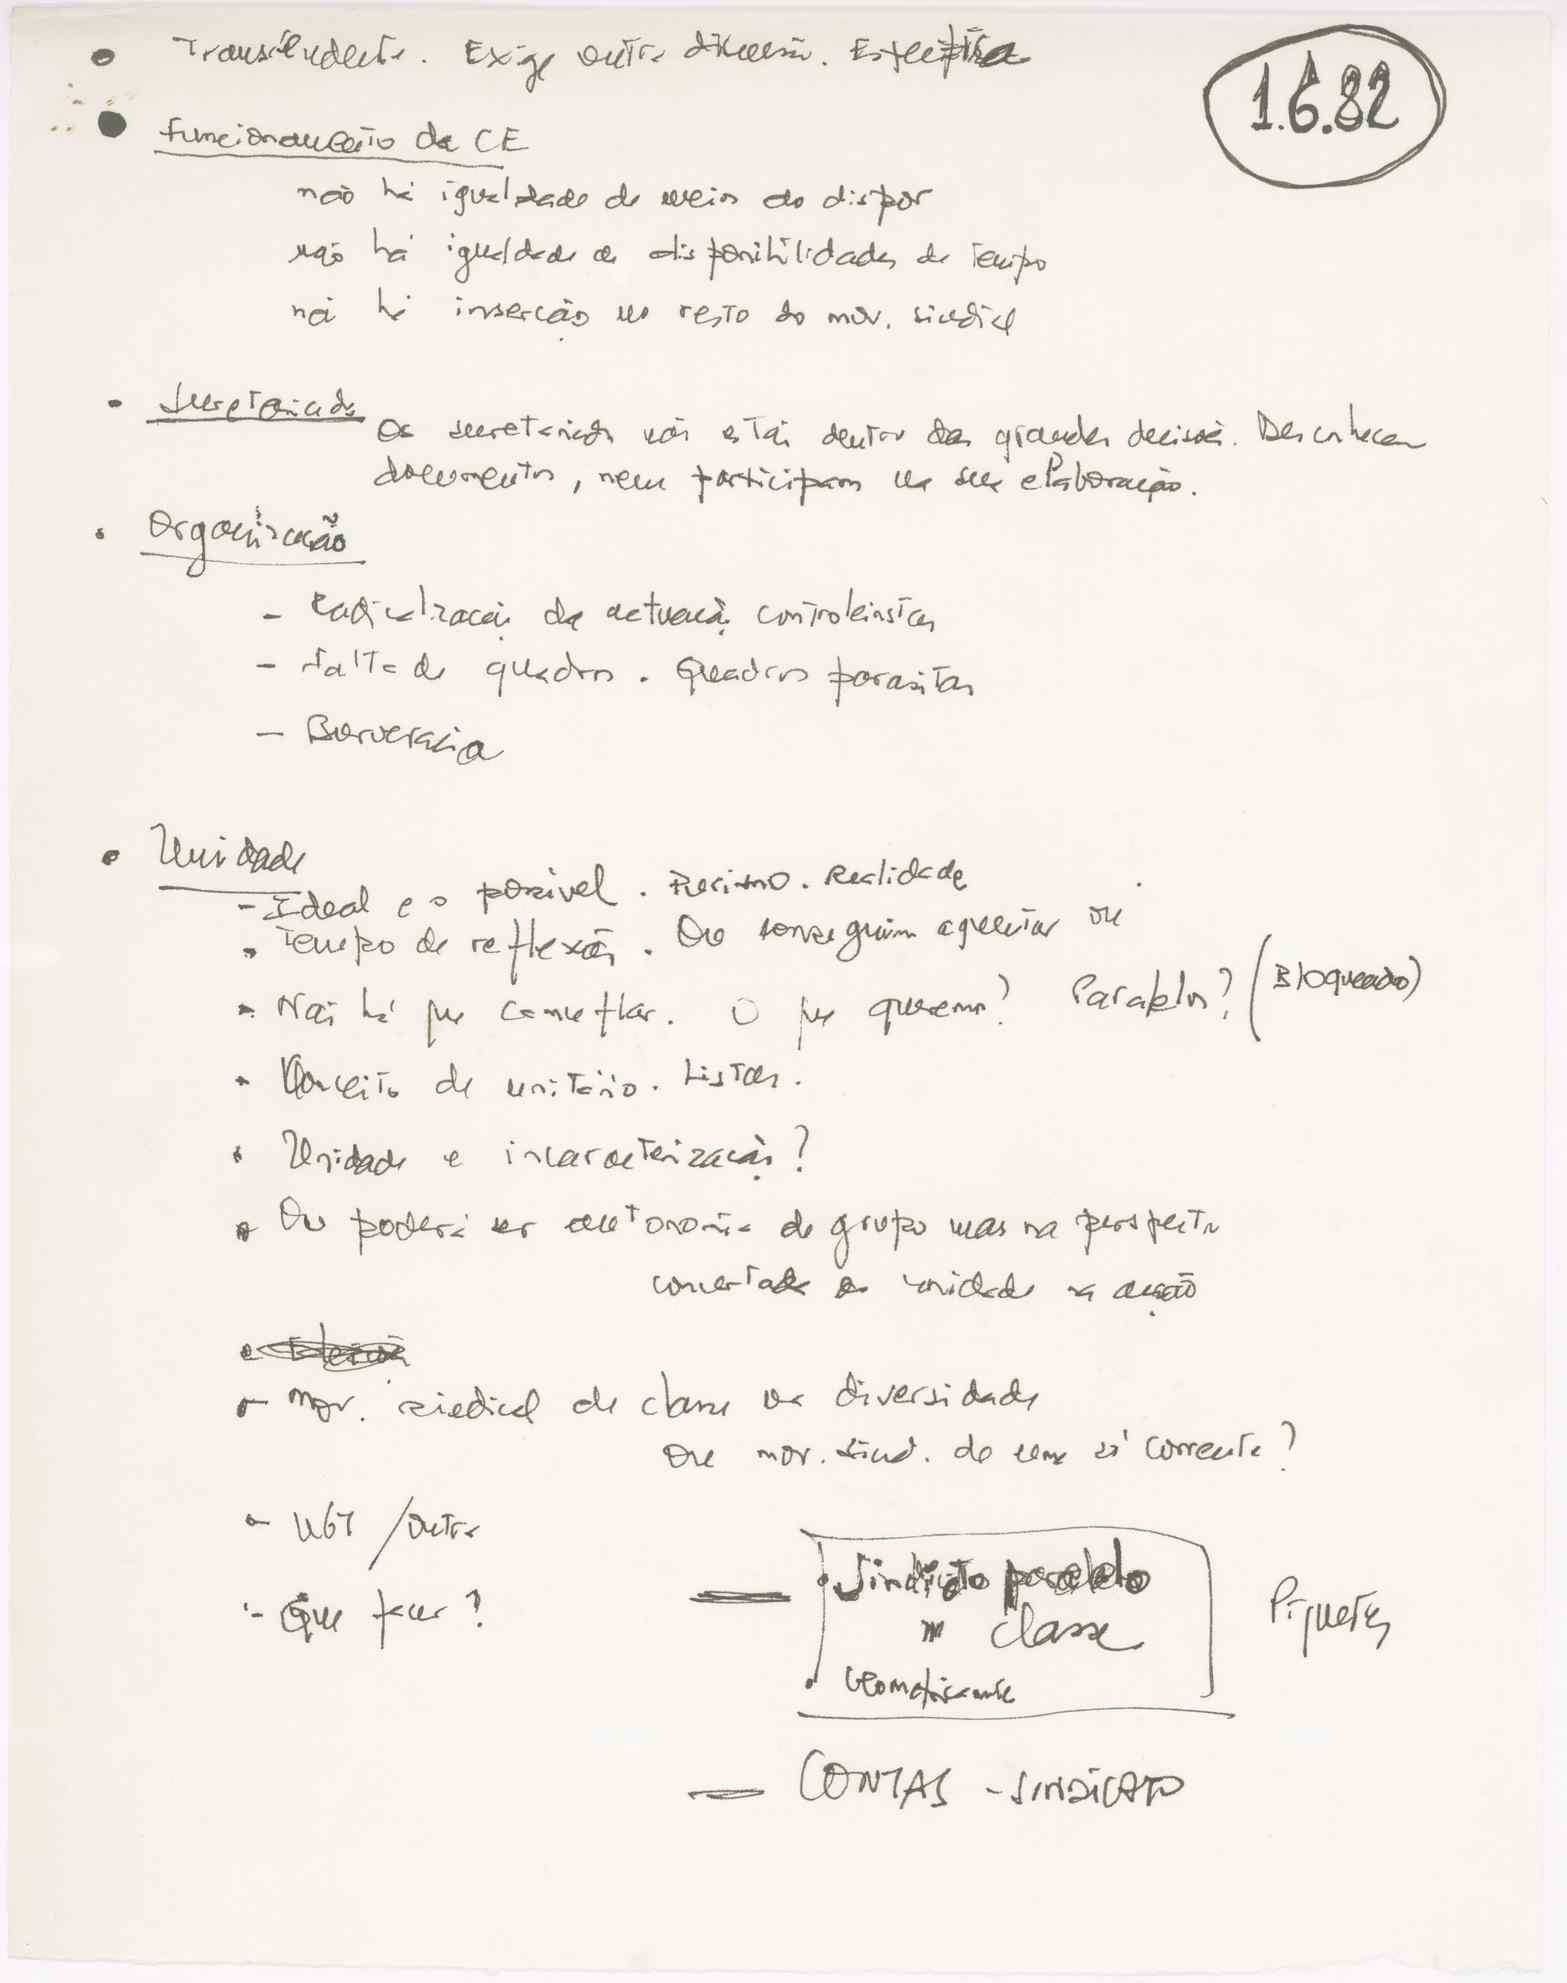 • Transcendente. Exige outra dimensão. Específica
1.6.82
• Funcionamento da CE
não há igualdade de meios ao dispor
não há igualdade de disponibilidades de tempo
não há inserção no resto do mov. sindical
• Secretariado
Os secretariados não estão dentro das grandes decisões. Desconhecem
documentos, nem participam na sua elaboração.
• Organização
- Radicalização da actuação controleirista
- Falta de quadros. Quadros parasitas
- Burocracia
• Unidade
- Ideal e o possível. Purismo. Realidade
• Tempo de reflexão. Ou conseguimos aguentar ou
• Não há que camuflar. O que queremos? Paralelos? (Bloqueado)
• Conceito de unitário. Listas.
• Unidade e incaracterização?
• Ou poderá ser autonomia de grupo mas na perspectiva
concertada da unidade na acção
- mov. sindical de classe na diversidade
ou mov. sind. de uma só corrente?
- UGT / outra
- Que fazer?
— • Sindicato paralelo
" classe
•
Piquetes
— CONTAS - SINDICATO